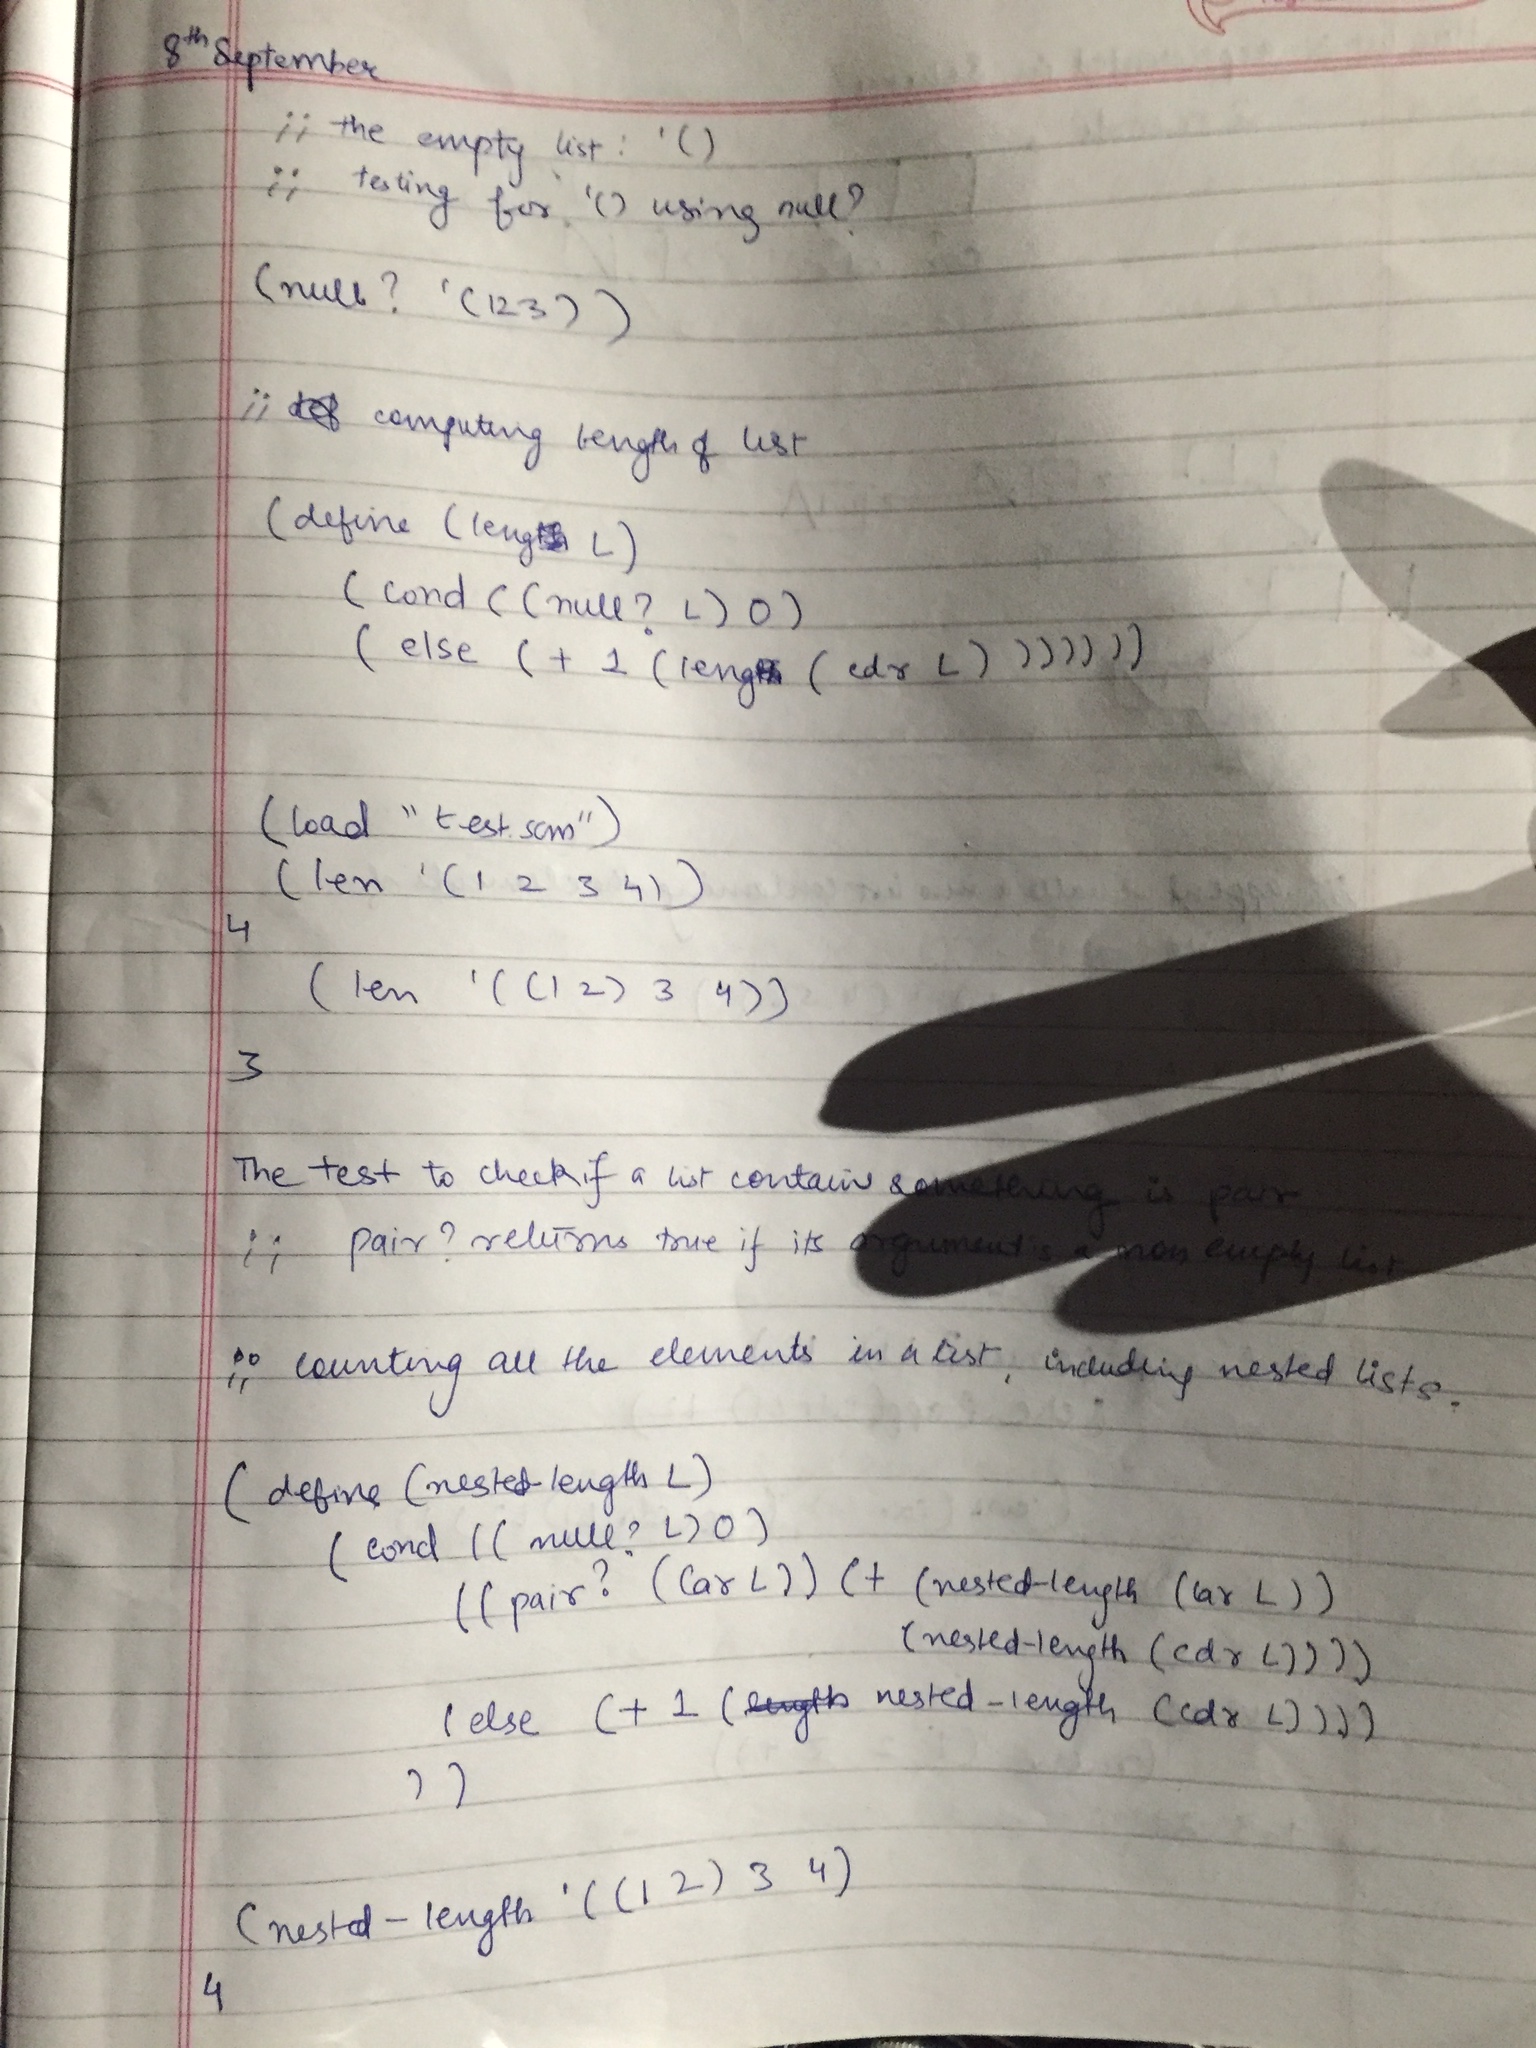 8th September
;; the empty list : '()
;; testing for '() using null?
(null? '(123))
;; computing length of list
(define (length L)
(cond ((null? L) 0)
(else (+ 1 (length (cdr L))))))))
(load "test.scm")
(len '(1 2 3 4))
4
(len '((1 2) 3 4))
3
The test to check if a list contains something is pair
;; pair? returns true if its argument is a non empty list
;; counting all the elements in a list, including nested lists.
(define (nested-length L)
(cond ((null? L) 0)
((pair? (car L)) (+ (nested-length (car L))
(nested-length (cdr L))))
(else (+ 1 (nested-length (cdr L))))
))
(nested-length '((1 2) 3 4)
4